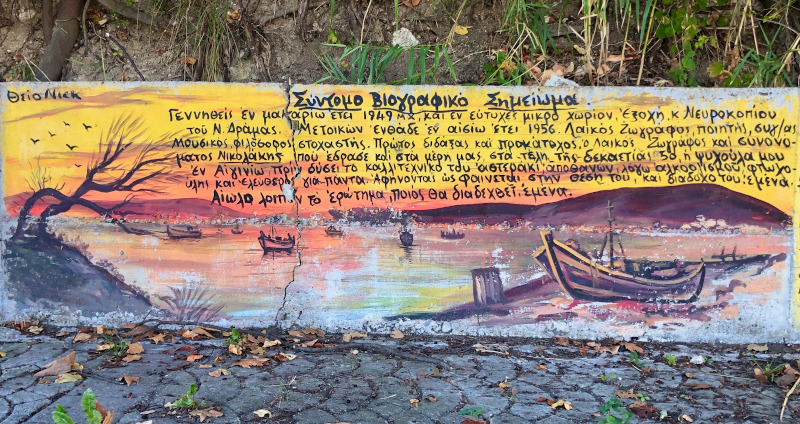 Θείο Νίεκ
Σύντομο Βιογραφικό Σημείωμα.
Γεννηθείς εν μακαρίω έτει 1949 μχ, και εν εύτυχες μικρό χωρίον, Έξοχή, κ Νευροκοπίου
του Ν. Δράμας. Μετοικών ένθάδε έν αισίω έτει 1956. Λαικός Ζωγράφος, ποιητής, συχ/ας
Μουσικός, φιλόσοφος, στοχαστής. Πρώτος διδάξας και προκάτοχος, ο Λαικός Ζωγράφος και συνονο-
ματος Νικολάκης που έδρασε και στα μέρη μας, στα τέλη της δεκαετίας 50, η ψυχούλα μου
έν Αίγινίω πριν δύσει το καλλιτεχνικό του άστεράκι, άποθανών λόγω αλκοολισμού, φτωχο-
ύλης και έλευθερος για πάντα. Αφήνοντας ως φαίνεται στην θέση του, και διάδοχό του, έμένα.
Αίωλο λοιπόν το έρώτημα, ποιός θα διαδεχθεί έμένα.